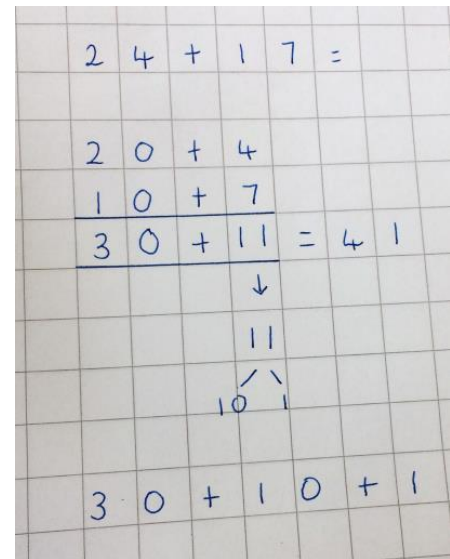 24+17=
20+4
10+7
30+11=41
↓
11
10 1
30+10+1